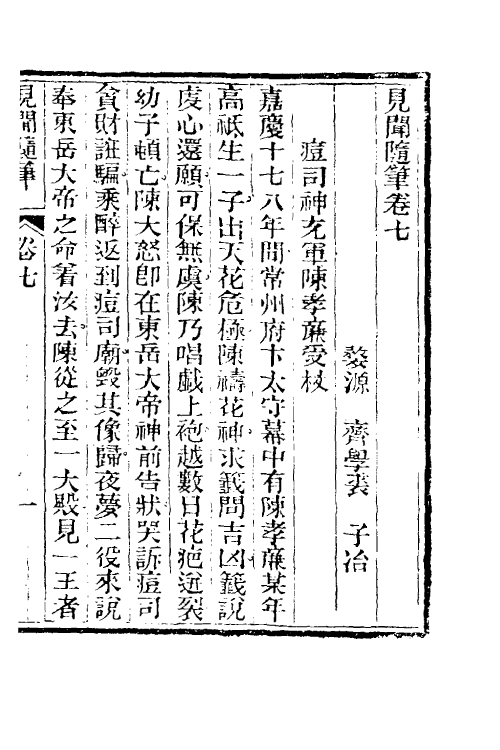 見聞隨筆卷七
婺源 齊學裘 子冶
痘司神充軍陳孝廉受杖
嘉慶十七八年間常州府卞太守幕中有陳孝廉某年
高祗生一子出天花危極陳禱花神求籤問吉凶籤說
虔心還願可保無虞陳乃唱戯上袍越數日花疤迸裂
幼子頓亡陳大怒即在東岳大帝神前告狀哭訴痘司
貪財誑騙乘醉返到痘司廟毀其像歸夜夢二役來說
奉東岳大帝之命著汝去陳從之至一大殿見一王者
見聞隨筆 卷七 一